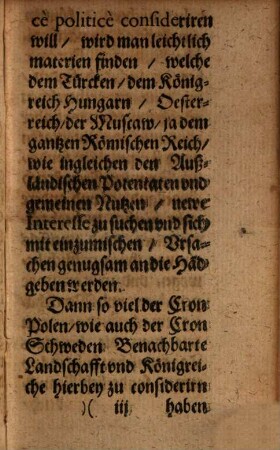 cè politicè consideriren
will / wird man leichtlich
materien finden / welche
dem Türcken / dem König-
reich Hungarn / Oester-
reich / der Muscaw / ja dem
gantzen Römischen Reich /
wie ingleichen den Auß-
ländischen Potentaten vnd
gemeinen Nutzen / newe
Interesse zu suchen vnd sich
mit einzumischen / Vrsa-
chen genugsam an die Häd
geben werden.
Dann so viel der Cron
Polen / wie auch der Cron
Schweden Benachbarte
Landschafft vnd Königrei-
che hierbey zu considerirn
)( iij haben